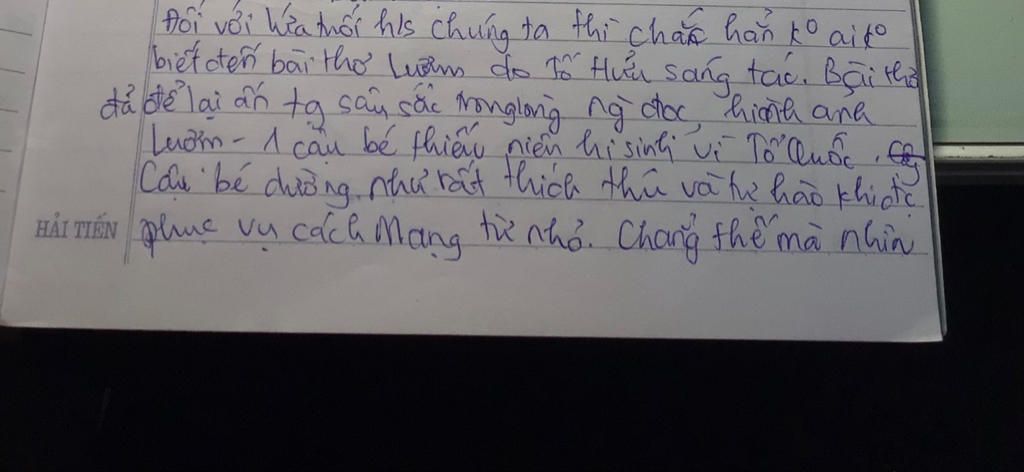 Đối với lứa tuổi h/s chúng ta thì chắc hẳn k⁰ ai k⁰
biết đến bài thơ Lượm do Tố Hữu sáng tác. Bài thơ
đã để lại ấn tg sâu sắc trong lòng ng đọc, hình ảnh
Lượm - 1 cậu bé thiếu niên hi sinh vì Tổ Quốc.
Cậu bé dường như rất thích thú và tự hào khi đc
HẢI TIẾN phục vụ cách Mạng từ nhỏ. Chẳng thế mà nhìn